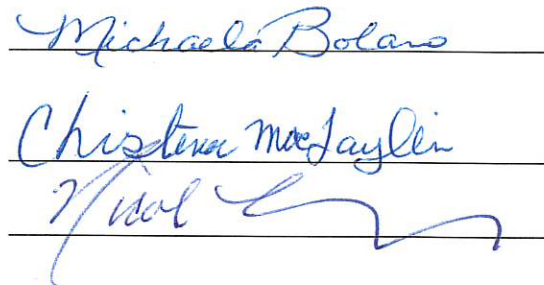 Michaela Bolano
Christena MacJaylin
Nicol